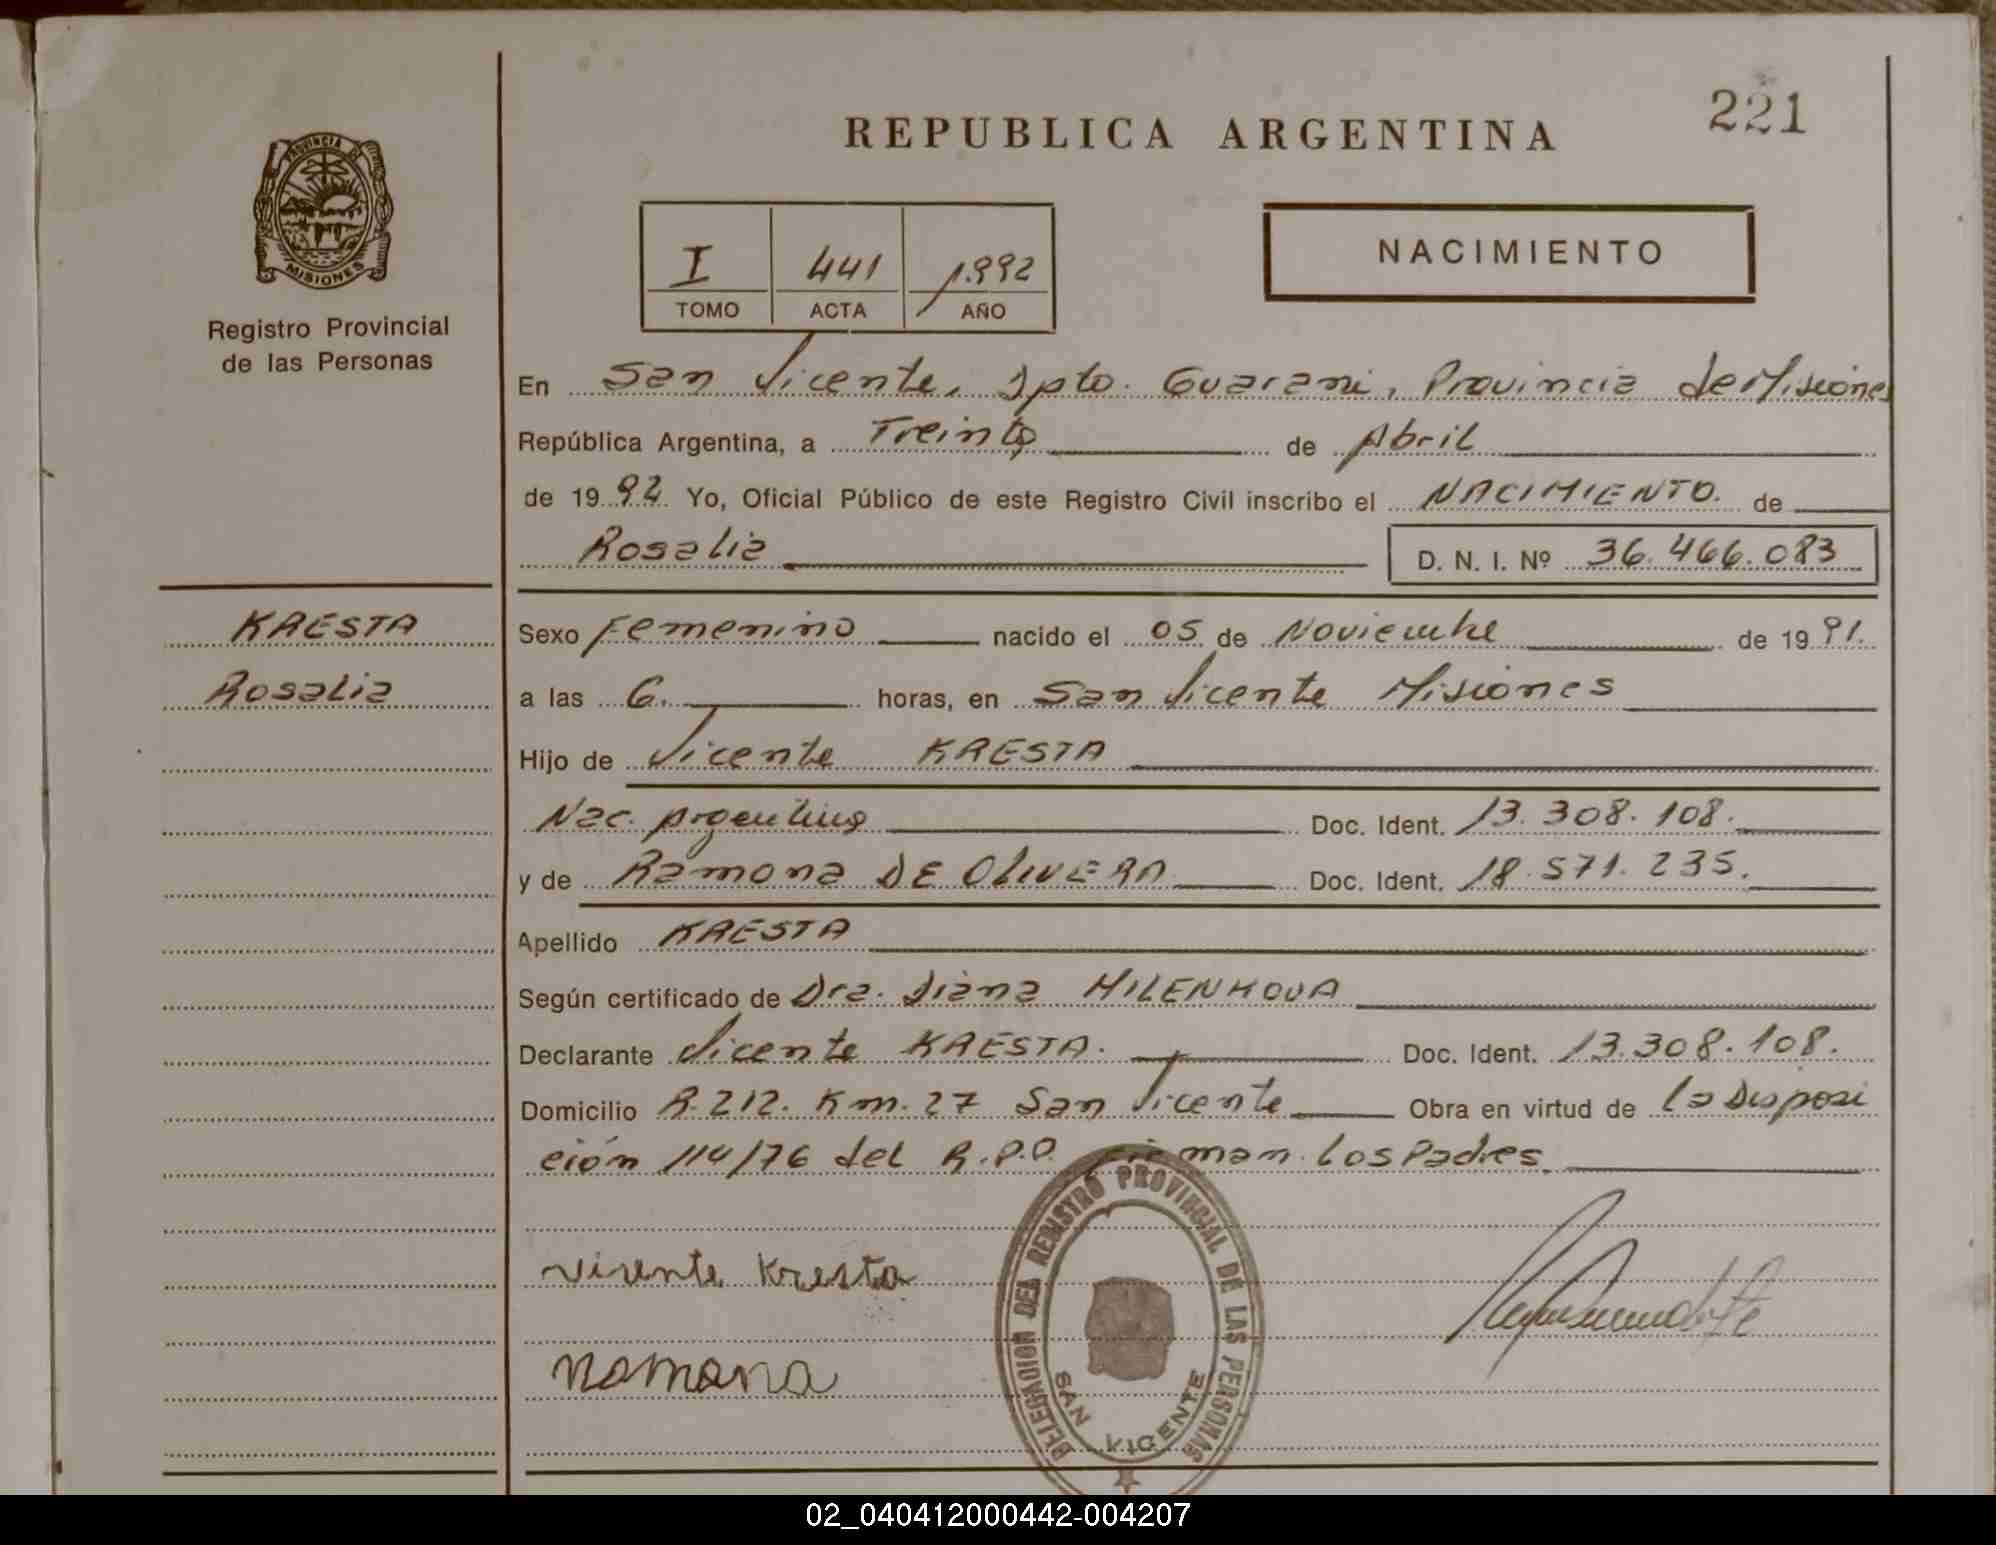 221
REPUBLICA ARGENTINA
PROVINCIA DE
MISIONES
Registro Provincial
de las Personas
I 441 1.992
TOMO ACTA AÑO
NACIMIENTO
En San Vicente, Dpto. Guarani, Provincia de Misiones
República Argentina, a Treinta de Abril
de 1992 Yo, Oficial Público de este Registro Civil inscribo el NACIMIENTO. de
Rosalia D. N. I. Nº 36.466.083
KRESTA
Rosalia
Sexo Femenino nacido el 05 de Noviembre de 1991.
a las 6. horas, en San Vicente Misiones
Hijo de Vicente KRESTA
Nac. Argentina Doc. Ident. 13.308.108.
y de Ramona DE OLIVERA Doc. Ident. 18.571.235.
Apellido KRESTA
Según certificado de Dra. Diana MILENKOVA
Declarante Vicente KRESTA. Doc. Ident. 13.308.108.
Domicilio R.212. Km.27 San Vicente Obra en virtud de la Disposi
ción 114/76 del R.P.P. Firman los Padres.
Visente Kresta
Ramona
DELEGACION DEL REGISTRO PROVINCIAL DE LAS PERSONAS
SAN VICENTE
02_040412000442-004207